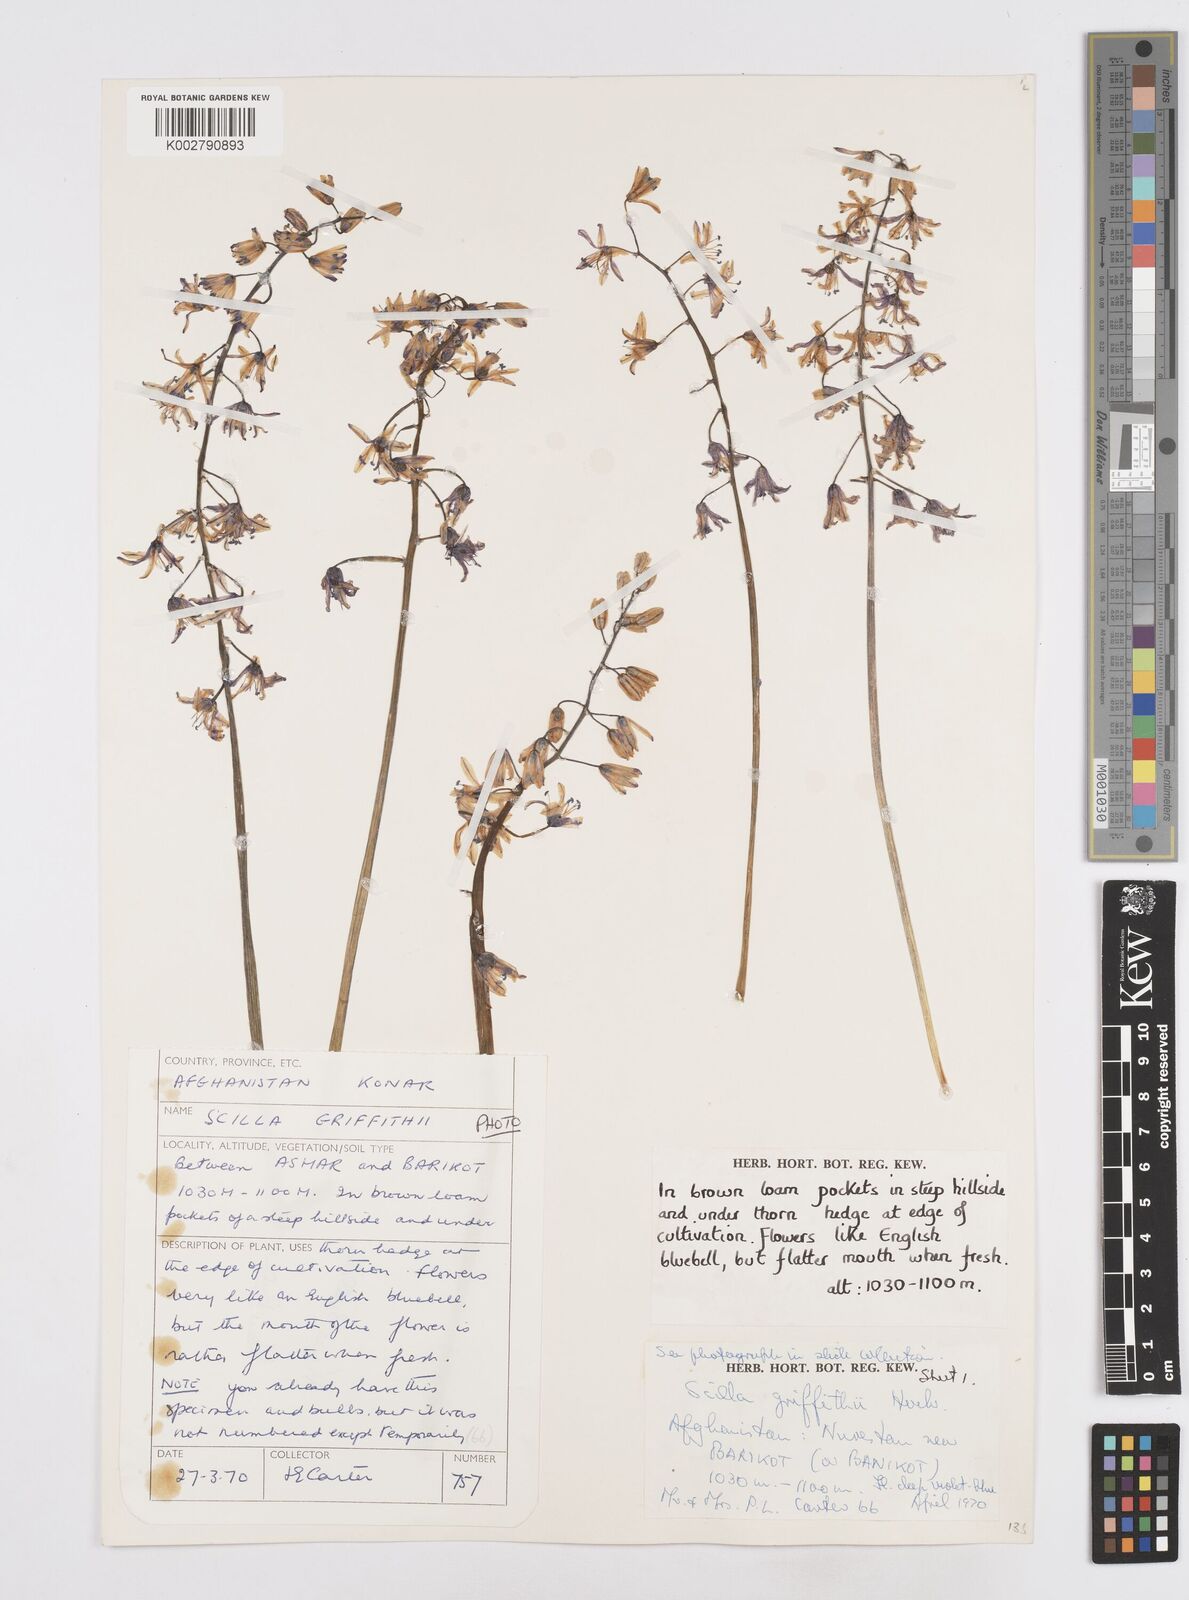 ROYAL BOTANIC GARDENS KEW
K002790893
COUNTRY, PROVINCE, ETC.
AFGHANISTAN KONAR
NAME
SCILLA GRIFFITHII PHOTO
LOCALITY, ALTITUDE, VEGETATION/SOIL TYPE
Between ASMAR and BARIKOT
1030M-1100M. In brown loam
pockets of a steep hillside and under
DESCRIPTION OF PLANT, USES thorn hedge at
the edge of cultivation. Flowers
very like an English bluebell,
but the mouth of the flower is
rather flatter when fresh.
NOTE you already have this
specimen and bulbs, but it was
not numbered except temporarily (66)
DATE COLLECTOR NUMBER
27-3-70 Carter 757
HERB. HORT. BOT. REG. KEW.
In brown loam pockets in steep hillside
and under thorn hedge at edge of
cultivation. Flowers like English
bluebell, but flatter mouth when fresh.
alt: 1030-1100m.
See photograph in slide collection.
HERB. HORT. BOT. REG. KEW.
Sheet 1.
Scilla griffithii Hoch.
Afghanistan: Nuristan near
BARIKOT (or BANIKOT)
1030m.-1100m. Fl. deep violet-blue
Mr. & Mrs. P.L. Carter 66 April 1970
inches
Density
Don Williams
M001030
centimeters
Royal Botanic Gardens
Kew
0 1 2 3 4 5 6 7 8 9 10
cm
copyright reserved